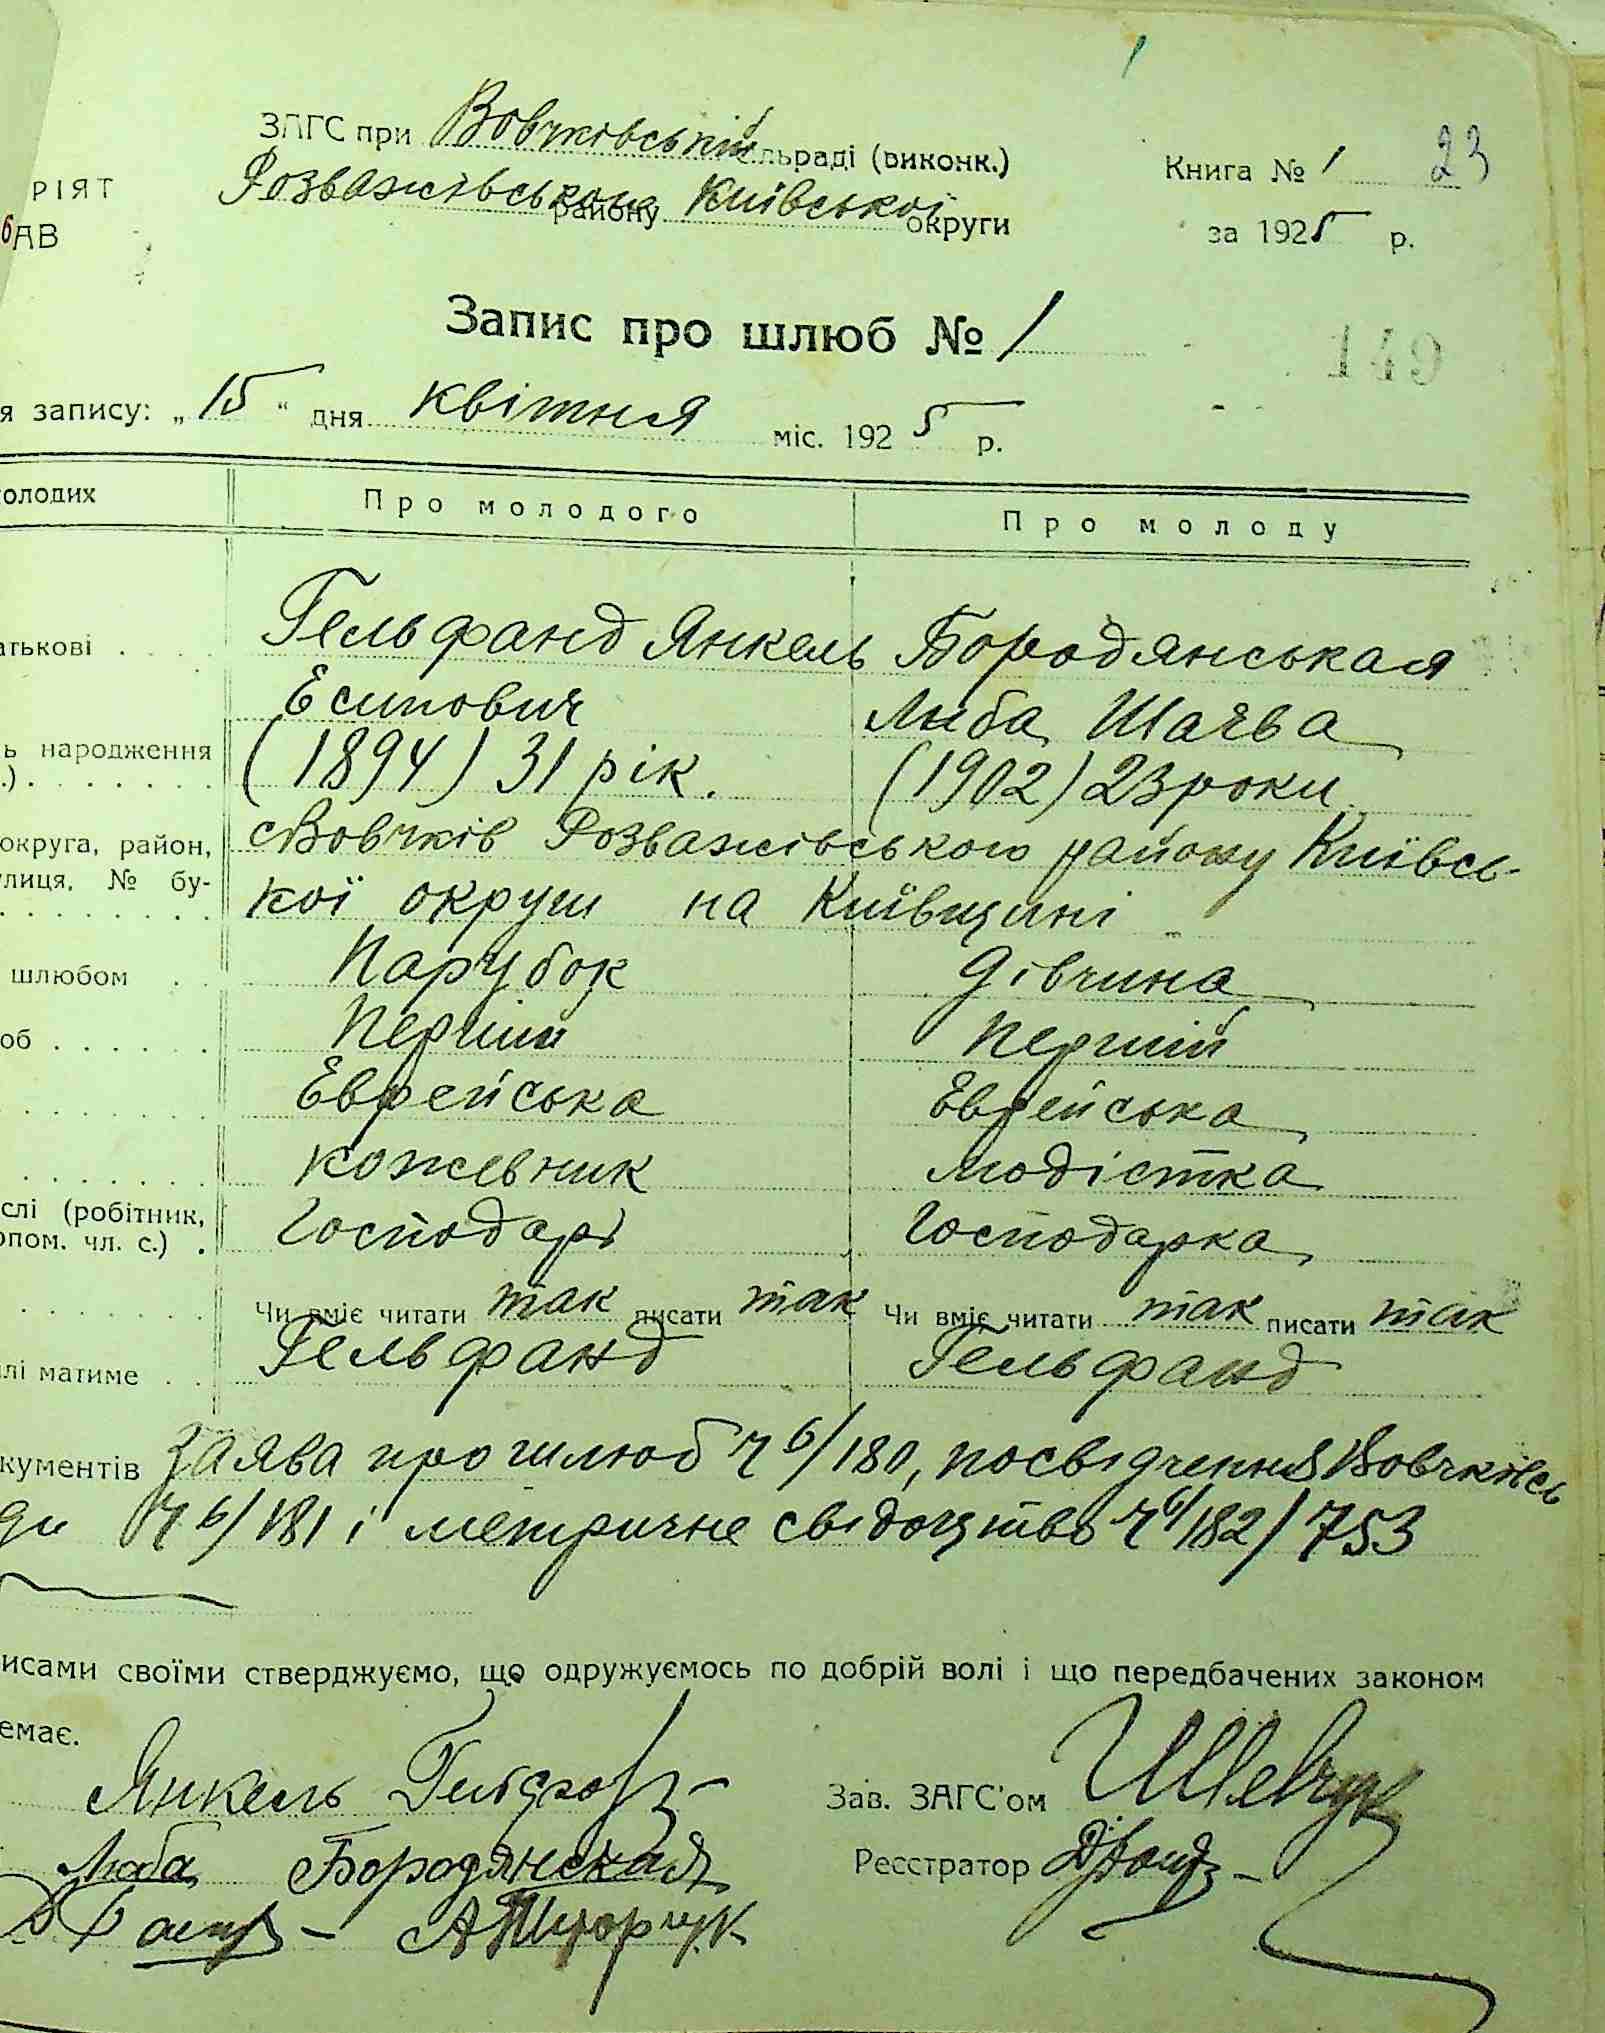 ЗАГС при Вовчківській сільраді (виконк.)
Книга № 1 23
РІЯТ
Розважівського району Київської округи
6АВ
за 1925 р.
Запис про шлюб № 1
149
я запису: „15“ дня квітня міс. 1925 р.
олодих Про молодого Про молоду
атькові Гельфанд Янкель Бородянськая
Есипович Либа Шаява
ь народження (1894) 31 рік. (1902) 23 роки
.)
округа, район, с Вовчків Розважівського району Київсь-
улиця, № бу- кої округи на Київщині
шлюбом Парубок Дівчина
об Перший Перший
Еврейська Еврейська
кожевник модістка
слі (робітник, Господарь Господарка
опом. чл. с.)
Чи вміє читати так писати так Чи вміє читати так писати так
лі матиме Гельфанд Гельфанд
кументів Заява про шлюб Ч 6/180, посвідчення Вовчківсь
ди Ч 6/181 і метричне свідоцтво Ч 6/182/753
исами своїми стверджуємо, що одружуємось по добрій волі і що передбачених законом
емає.
Янкель Зав. ЗАГС'ом Шевчук
Люба Бородянская Реєстратор